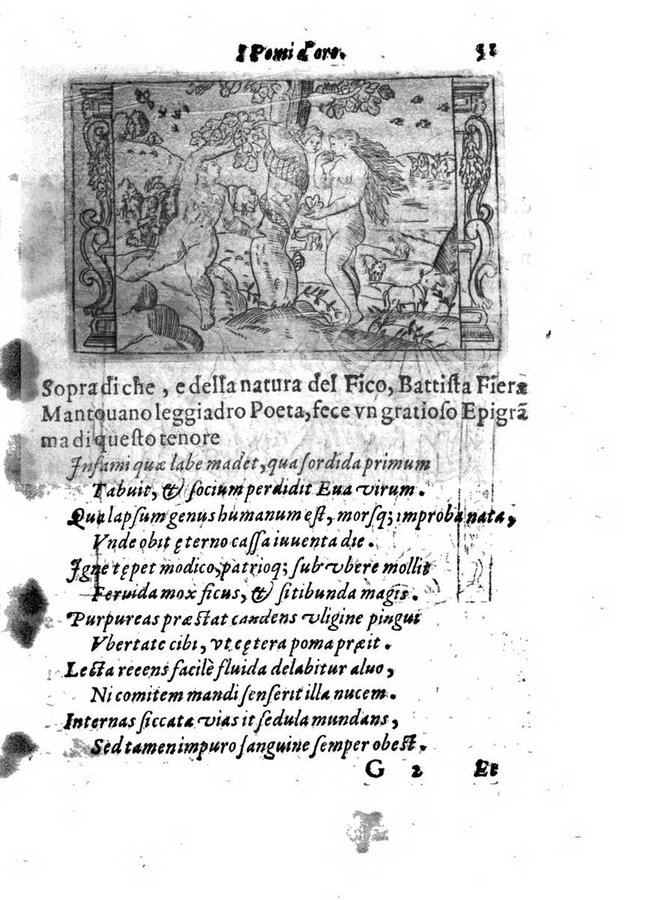 I Pomi d'oro. 51
Sopra di che, e della natura del Fico, Battista Fiera
Mantouano leggiadro Poeta, fece vn gratioso Epigrã
ma di questo tenore
Infami quæ labe madet, qua sordida primum
Tabuit, & socium perdidit Eua virum.
Qua lapsum genus humanum est, morsq; improba nata,
Vnde obit ęterno cassa iuuenta die.
Igne tępet modico, patrioq; sub vbere mollis
Feruida mox ficus, & sitibunda magis.
Purpureas præstat candens vligine pingui
Vbertate cibi, vt cętera poma præit.
Lecta recens facilè fluida delabitur aluo,
Ni comitem mandi senserit illa nucem.
Internas siccata vias it sedula mundans,
Sed tamen impuro sanguine semper obest.
G 2 Et